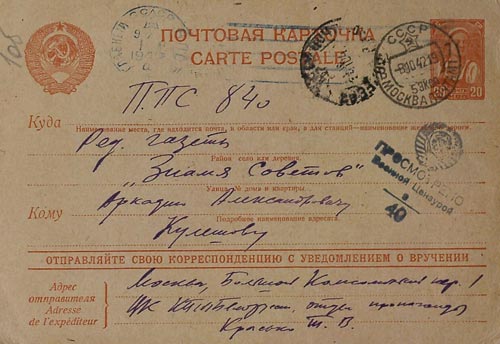 ПОЧТОВАЯ КАРТОЧКА
CARTE POSTALE
СССР
МОСКВА
20 20
П.П.С 840
Куда
Наименование места, где находится почта, и области или края, а для станций—наименование
Ред. газеты
Район село или деревня.
"Знамя Советов"
Улица, № дома и квартиры.
Кому
Аркадию Александровичу
Подробное наименование адресата.
Кулешову
ПРОСМОТРЕНО
Военной Цензурой
40
ОТПРАВЛЯЙТЕ СВОЮ КОРРЕСПОНДЕНЦИЮ С УВЕДОМЛЕНИЕМ О ВРУЧЕНИИ
Адрес
отправителя
Adresse
de l'expéditeur
Москва, Большой Комсомольский пер. 1
ЦК КП(б) Белоруссии, отдел пропаганды
Т. В.